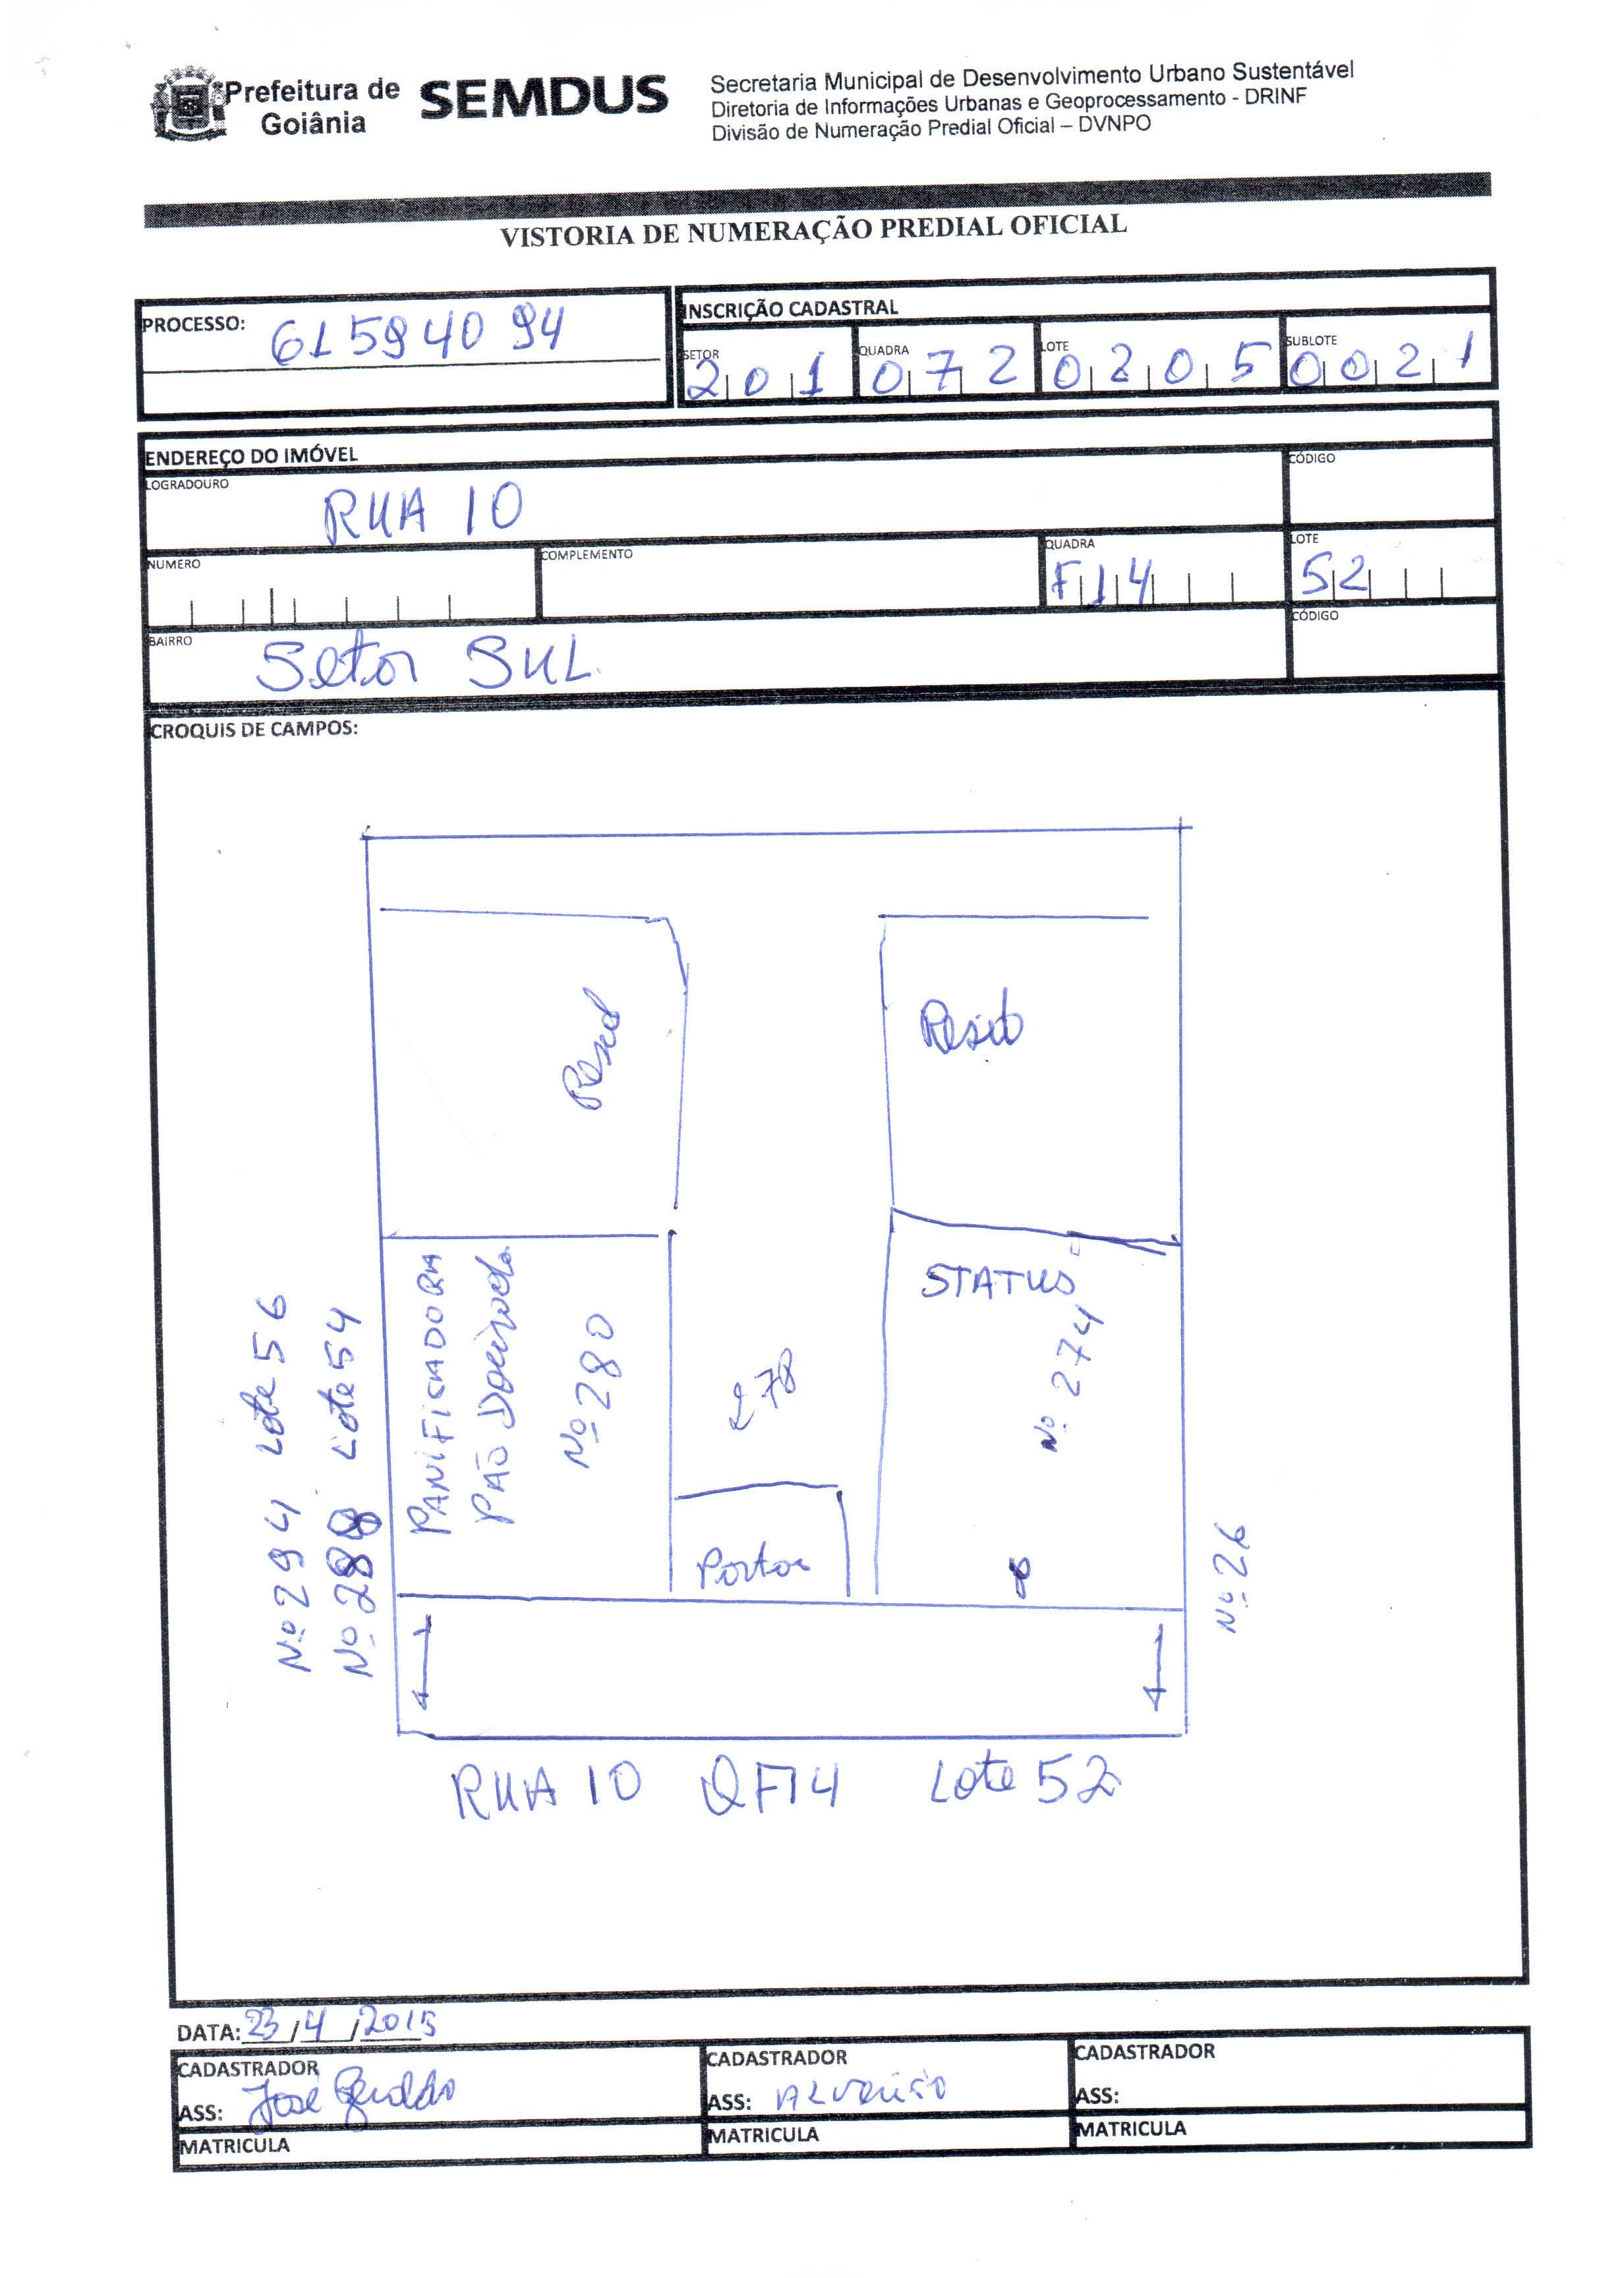 Prefeitura de
Goiânia
SEMDUS
Secretaria Municipal de Desenvolvimento Urbano Sustentável
Diretoria de Informações Urbanas e Geoprocessamento - DRINF
Divisão de Numeração Predial Oficial – DVNPO
VISTORIA DE NUMERAÇÃO PREDIAL OFICIAL
PROCESSO: 61594094
INSCRIÇÃO CADASTRAL
SETOR 201 QUADRA 072 LOTE 0205 SUBLOTE 0021
ENDEREÇO DO IMÓVEL
LOGRADOURO RUA 10 CÓDIGO
NUMERO COMPLEMENTO QUADRA F14 LOTE 52
BAIRRO Setor SUL CÓDIGO
CROQUIS DE CAMPOS:
Resid
STATUS
Nº 274
278
Portão
PANIFICADORA
PÃO Dourado
Nº 280
Nº 294 Lote 56
Nº 288 Lote 54
Nº 26
RUA 10 QF14 Lote 52
DATA: 23/4/2015
CADASTRADOR CADASTRADOR CADASTRADOR
ASS: José Geraldo ASS: ASS:
MATRICULA MATRICULA MATRICULA